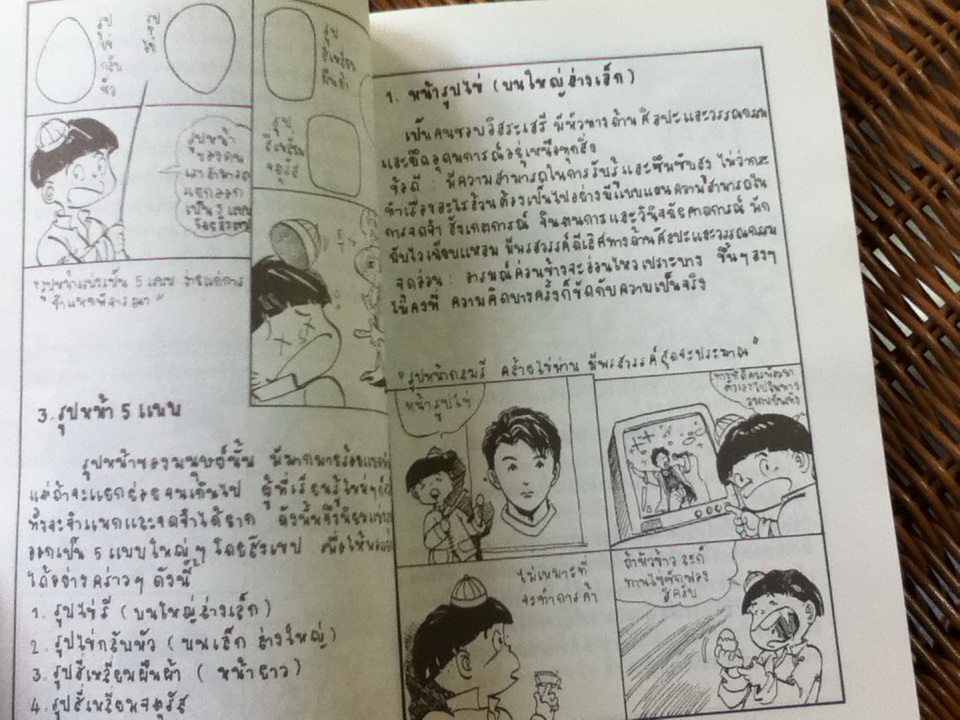 รูป
ไข่
กลับ
หัว
รูป
ไข่
รูป
สี่เหลี่ยม
ผืนผ้า
รูป
สี่เหลี่ยม
จตุรัส
รูปหน้า
ของคน
เราสามารถ
แยกออก
เป็น 5 แบบ
โดยสังเขป
"รูปหน้าแบ่งเป็น 5 แบบ ง่ายแก่การ
จำแนกพิจารณา"
3. รูปหน้า 5 แบบ
รูปหน้าของมนุษย์นั้น มีมากมายร้อยแบบ
แต่ถ้าจะแยกย่อยจนเกินไป ผู้ที่เรียนรู้ใหม่ๆ
ก็จะจำแนกและจดจำได้ยาก ดังนั้นจึงนิยม
ออกเป็น 5 แบบใหญ่ๆ โดยสังเขป เพื่อให้
ได้อย่างคร่าวๆ ดังนี้
1. รูปไข่รี (บนใหญ่ล่างเล็ก)
2. รูปไข่กลับหัว (บนเล็ก ล่างใหญ่)
3. รูปสี่เหลี่ยมผืนผ้า ( หน้ายาว)
4. รูปสี่เหลี่ยมจตุรัส
1. หน้ารูปไข่ (บนใหญ่ล่างเล็ก)
เป็นคนชอบอิสระเสรี มีหัวทางด้านศิลปะและวรรณกรรม
และยึดอุดมการณ์อยู่เหนือทุกสิ่ง
ข้อดี : มีความสามารถในการรับรู้และซึมซับสูง ไม่ว่ากระ
ทำเรื่องอะไรล้วนต้องเป็นไปอย่างมีแบบแผนความสามารถใน
การจดจำ สังเกตการณ์ จินตนการและวินิจฉัยคาดการณ์ มัก
ฉับไวเฉียบแหลม มีพรสวรรค์ดีเลิศทางด้านศิลปะและวรรณกรรม
จุดอ่อน : อารมณ์ค่อนข้างจะอ่อนไหวเปราะบาง ขึ้นๆลงๆ
ไม่คงที่ ความคิดบางครั้งก็ขัดกับความเป็นจริง
"รูปหน้ากลมรี คล้ายไข่ห่าน มีพรสวรรค์สุดจะประมาณ"
หน้ารูปไข่
ทางที่ดีควรพัฒนา
ตัวเองไปในทาง
วงการบันเทิง
ไม่เหมาะที่
จะทำการค้า
ถ้าหิวข้าว ละก็
ทานไข่ซักฟอง
สิครับ